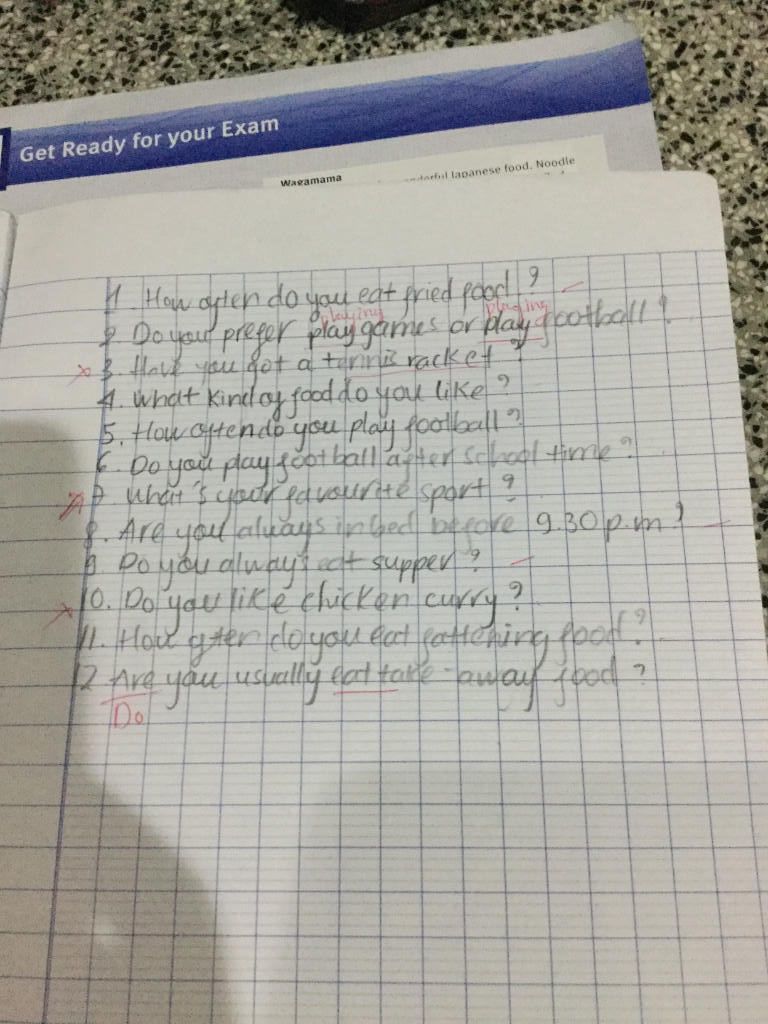 Get Ready for your Exam
Wagamama
Japanese food. Noodle
1. How often do you eat fried food?
playing playing
2. Do you prefer play games or play football?
x 3. Have you got a tennis racket?
4. What kind of food do you like?
5. How often do you play football?
6. Do you play football after school time?
7. What's your favourite sport?
8. Are you always in bed before 9.30 p.m?
9. Do you always eat supper?
x 10. Do you like chicken curry?
11. How often do you eat fattening food?
12 Are you usually eat take-away food?
Do